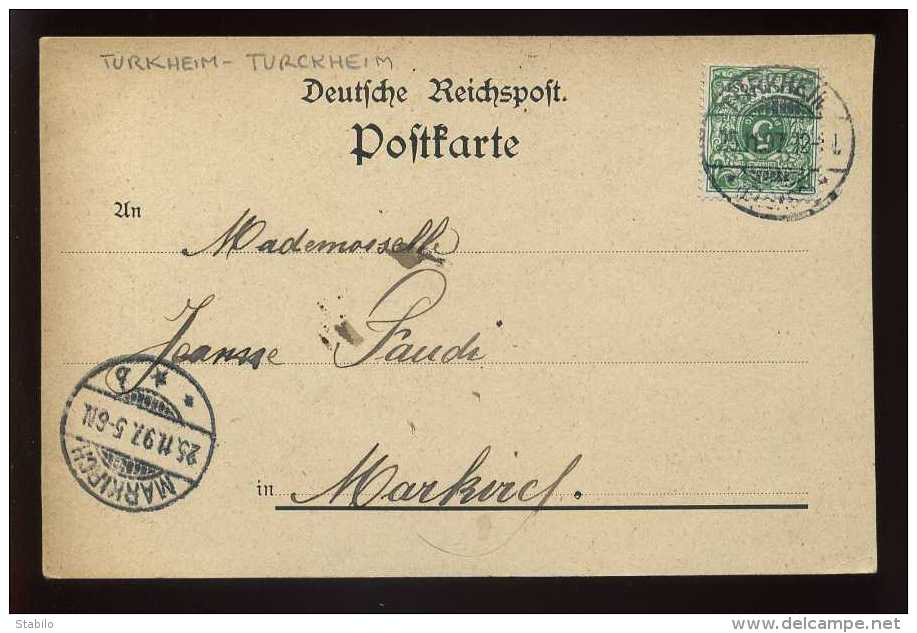 TURKHEIM - TURCKHEIM
Deutsche Reichspost.
Postkarte
TÜRKHEIM
5
An
Mademoiselle
Jeanne
in Markirch.
MARKIRCH
25.11.97. 5-6N.
* * b
Stabilo
www.delcampe.net